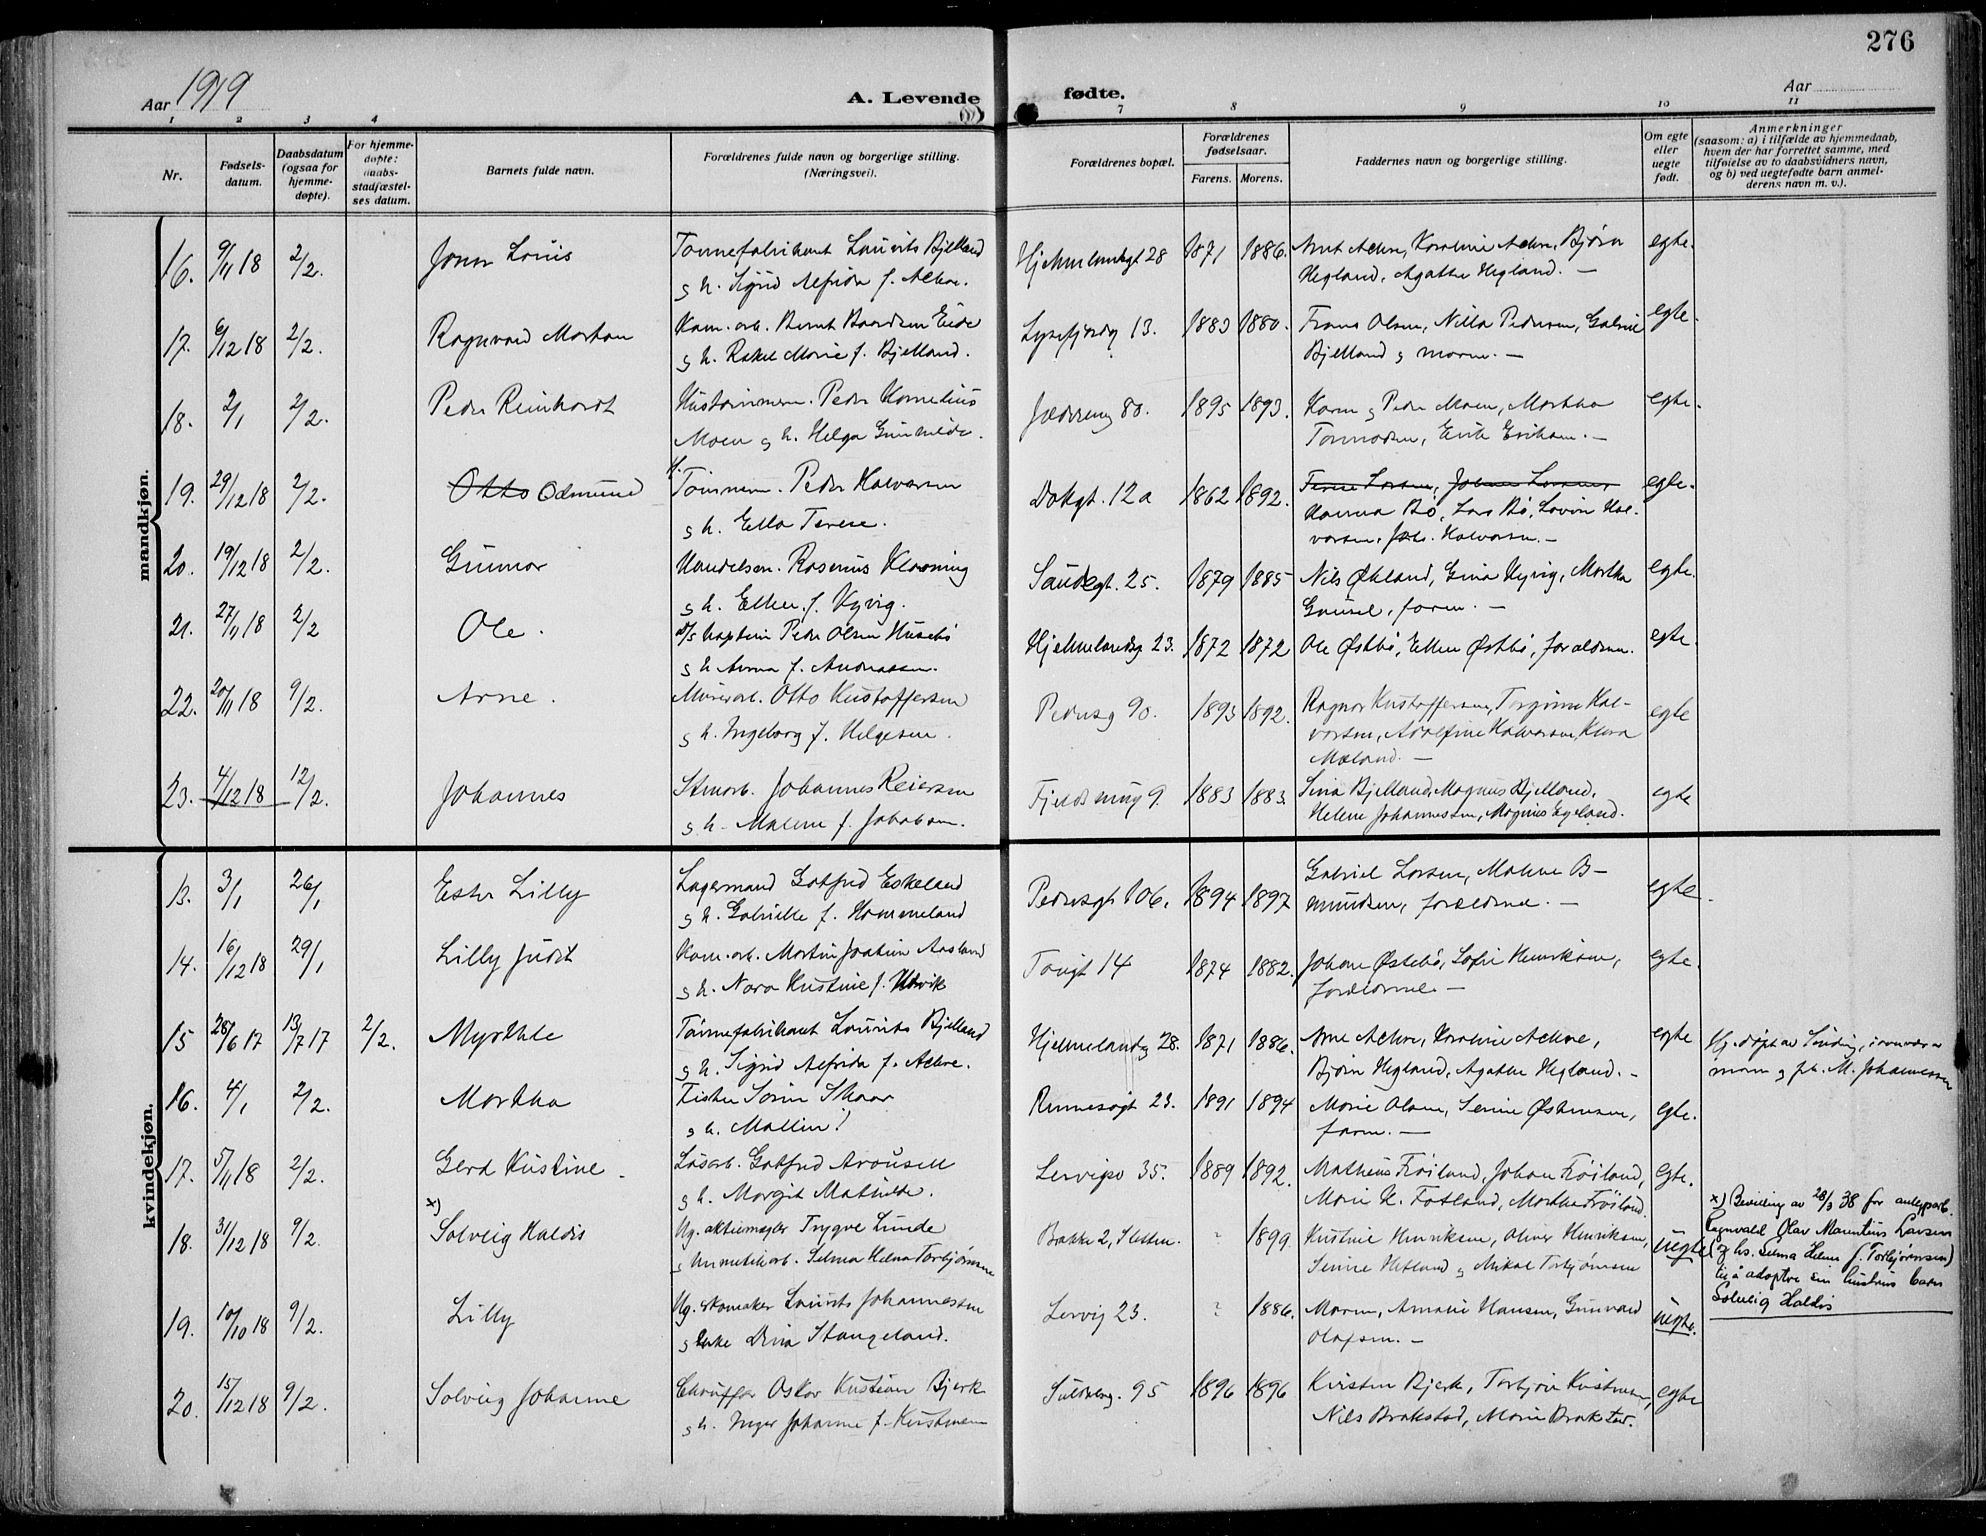 276
Aar 1919
A. Levende fødte.
Aar
1 2 3 4 7 8 9 10 11
Nr.
Fødsels-
datum.
Daabsdatum
(ogsaa for
hjemme-
døpte).
For hjemme-
døpte:
daabs-
stadfæstel-
ses datum.
Barnets fulde navn.
Forældrenes fulde navn og borgerlige stilling.
(Næringsvei).
Forældrenes bopæl.
Forældrenes
fødselsaar.
Farens. Morens.
Faddernes navn og borgerlige stilling.
Om egte
eller
uegte
født.
Anmerkninger
(saasom: a) i tilfælde av hjemmedaab,
hvem der har forrettet samme, med
tilføielse av to daabsvidners navn,
og b) ved uegtefødte barn anmel-
derens navn m. v.).
mandkjøn.
16. 9/11 18 2/2. Louis Tønnefabrikant Laurits Bjelland 1871 1886. Karoline Achre, Bjørn egte.
g h. Sigrid Alfrida f. Achre. Hegland, Agathe Hegland. —
17. 6/12 18 2/2. Ragnvald Kom. arb. Bernt Bardsen Eide Lysefjordg 13. 1883 1880. Frans Olsen, Nilla Pedersen, Gabriel egte.
g h. Rakel Marie f. Bjelland. Bjelland g moren. —
18. 2/1 2/2. Peder Reinhardt Peder Kornelius 80. 1895 1893. Karen g Peder Moen, Martha egte.
Moen g h. Helga Gunhilde. Erik Eriksen. —
19. 29/12 18 2/2. Otto Odmund Tømmerm. Peder Halvorsen Dokgt. 12a 1862 1892. egte.
g h. Ella Terese. Hanna Bø, Lars Bø, Hal-
vorsen, Halvorsen. —
20. 19/12 18 2/2. Gunnar Handelsm. Rasmus Kloming Saudegt. 25. 1879 1885 Nils Økland, Gina Vyvig, Martha egte.
g h. Ellen f. Vyvig. Gausel, faren. —
21. 27/11 18 2/2 Ole. D/S kaptein Peder Olsen Husebø Hjelmelandsg 23. 1872 1872 Ole Østbø, Ellen Østbø, forældrene. egte
g h Anna f. Andreassen.
22. 20/11 18 9/2. Arne. Murerarb. Otto Kristoffersen Pedersg 90. 1893 1892. Ragnar Kristoffersen, Hal- egte
g h. Ingeborg f. Helgesen. vorsen, Adolfine Halvorsen, Klara
Mæland. —
23. 4/12 18 12/2. Johannes Stenarb. Johannes Reiersen 9. 1883 1883. Sina Bjelland, Magnus Bjelland, egte
g h. Malene f. Jakobsen. Helene Johannessen, Magnus Egeland.
kvindekjøn.
13. 3/1 26/1 Ester Lilly Lagermand Gotfred Eskeland Pedersgt 106. 1894 1897 Gabriel Larsen, Malene B- egte.
g h. Gabrielle f. Hommeland mundsen, forældrene. —
14. 16/12 18 29/1 Lilly Judit Kom. arb. Martin Joakim Aasland 14 1874 1882. Johan Østebø, Sofie Henriksen, egte.
g h. Nora Kristine f. forældrene. —
15 28/6 17 13/7 17 2/2. Myrthle Tønnefabrikant Laurits Bjelland Hjelmelandsg 28. 1871 1886. Arne Achre, Karoline Achre, egte Hj. døpt av Sinding,
g h. Sigrid Alfrida f. Achre. Bjørn Hegland, Agathe Hegland. — M. Johannessen
16. 4/1 2/2. Martha Fisker Sørin Skaar 23. 1891 1894 Marie Olsen, Serine Østensen, egte.
g h. Mallin faren. —
17. 5/11 18 2/2 Gerd Kristine. Løsarb. Gotfred Arousell 35. 1889 1892. Matheus Frøiland, Johan Frøiland, egte.
g h. Margit Mathilde. Marie H. Fotland, Martha Frøiland.
x) Bevilling av 28/3 38 for
Ragnvald Olav Mauritius Larsen
(og hs. Selma Helene f. Torbjørnsen)
til å adoptere sin hustrus barn
Solveig Haldis
18. 31/12 18 9/2. x) Solveig Haldis Ug. aktiemegler Trygve Lunde Bakke 2, ? 1899. Kristine Henriksen, Oliver Henriksen, uegte
g hermetikarb. Selma Helene Torbjørnsen Serine Hetland g Mikal Torbjørnsen
19. 10/10 18 9/2. Lilly Ug. skomaker Laurits Johannessen Lervig 23. ? 1886. Moren, Amalie Hansen, Gunvald uegte.
g Dina Stangeland. Olafsen. —
20. 15/12 18 9/2. Solveig Johanne Chauffør Oskar Kristian Bjerk 95 1896 1896 Kirsten Bjerk, Torbjørn Kristensen, egte
g h. Inger Johanne f. Kristensen Nils Brakstad, Marie Brakstad.